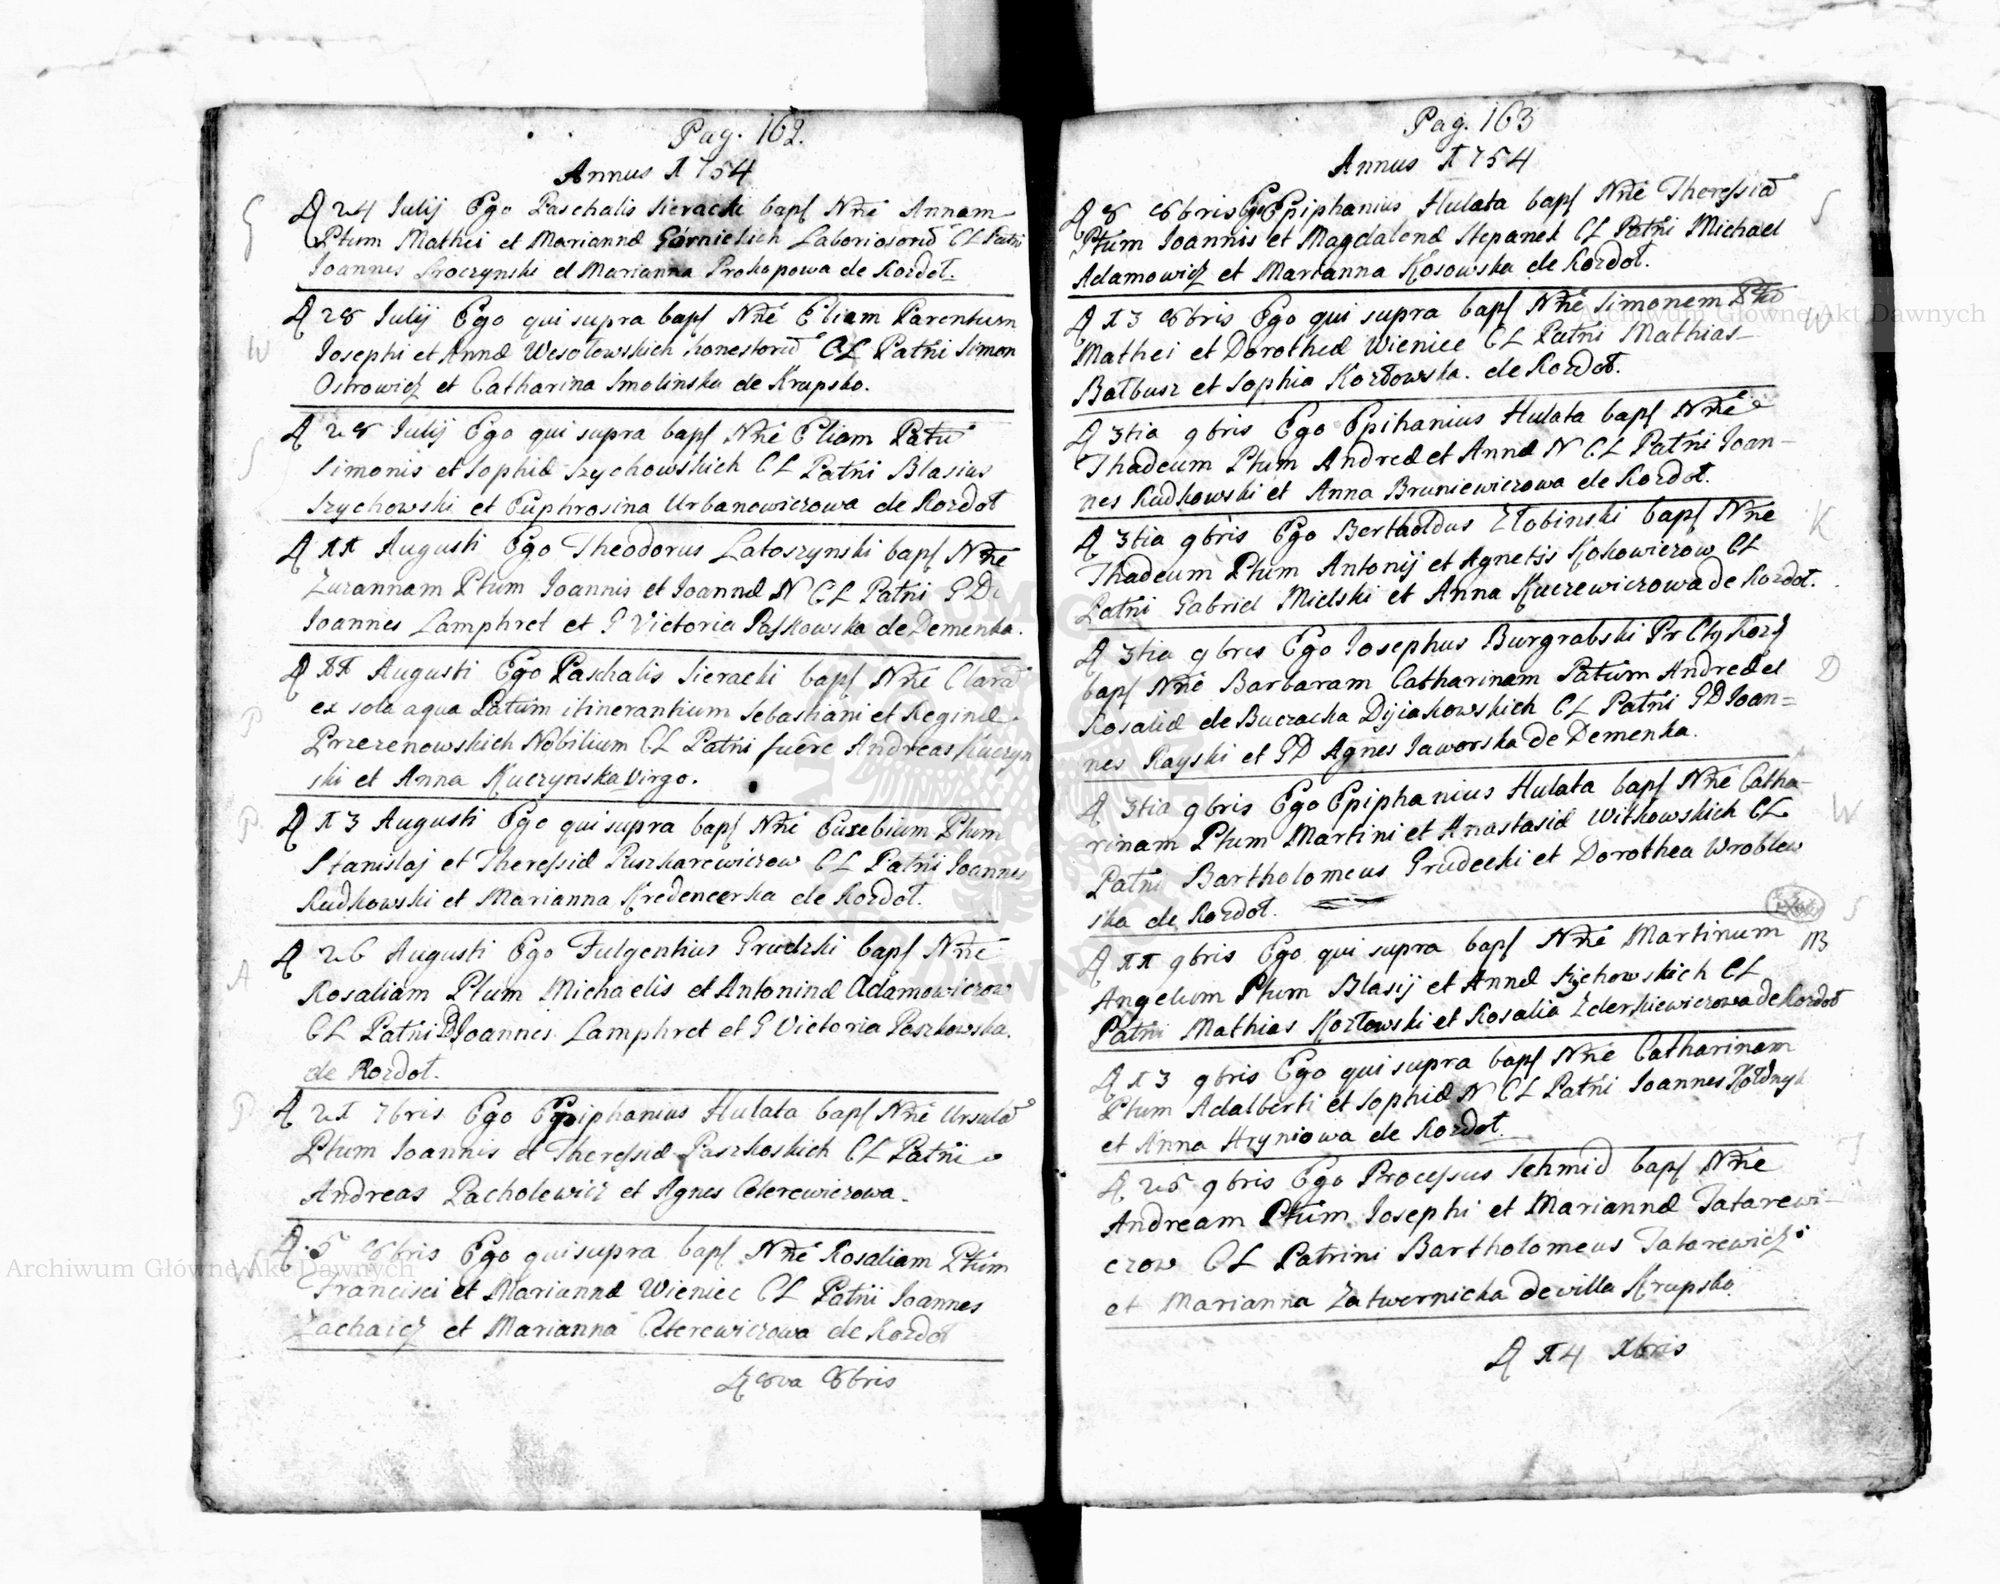 Pag. 162.
Annus 1754
G
D 24 Julij Ego Paschalis Sieracki bapt Nñe Annam
Ptum Mathei et Mariannæ Górnickich Laboriosorũ CL Patni
Joannes Sroczynski et Marianna Prokopowa de Rozdoł.
W
D 28 Julij Ego qui supra bapt Nñe Eliam Parentum
Josephi et Annæ Wesołowskich honestorũ CL Patñi Simon
Ostrowicz et Catharina Smolinska de Krupsko.
S
D 28 Julij Ego qui supra bapt Nñe Eliam Patũ
Simonis et Sophiæ Szychowskich CL Patñi Blasius
Szychowski et Euphrosina Urbanowiczowa de Rozdoł
D 11 Augusti Ego Theodorus Latoszynski bapt Nñe
Zuzannam Ptum Joannis et Joannæ N CL Patñi GD
Joannes Lamphret et G Victoria Passkowska de Demenka.
D 11 Augusti Ego Paschalis Sieracki bapt Nñe Clarã
P
ex sola aqua Patum itinerantium Sebastiani et Reginæ
Przezenowskich Nobilium CL Patñi fuêre Andreas Kuczyn
ski et Anna Kuczynska Virgo.
P
D 13 Augusti Ego qui supra bapt Nñe Eusebium Ptum
Stanislaj et Theressiæ Puszkarewiczow CL Patñi Joannes
Rudkowski et Marianna Kredencerka de Rozdoł.
D 26 Augusti Ego Fulgentius Grudzki bapt Nñe
A
Rosaliam Ptum Michaelis et Antoninæ Adamowiczow
CL Patñi D Joannes Lamphret et G Victoria Paszkowska
de Rozdoł.
P
D 21 7bris Ego Epiphanius Hulata bapt Nñe Ursulã
Ptum Joannis et Theressiæ Paszkoskich CL Patñi
Andreas Pacholewicz et Agnes Ceterewiczowa.
D 5 8bris Ego qui supra bapt Nñe Rosaliam Ptum
W
Francisci et Mariannæ Wieniec CL Patñi Joannes
Zachaicz et Marianna Ceterewiczowa de Rozdoł
D 8va 8bris
Pag. 163
Annus 1754
D 8 8bris Ego Epiphanius Hulata bapt Nñe Theressiã
S
Ptum Joannis et Magdalenæ Stepanek CL Patñi Michael
Adamowicz et Marianna Kosowska de Rozdoł.
D 13 8bris Ego qui supra bapt Nñe Simonem Ptũ
W
Mathei et Dorotheæ Wieniec CL Patñi Mathias
Bałbusz et Sophia Kozłowska de Rozdoł.
D 3tia 9bris Ego Epihanius Hulata bapt Nñe
Thadeum Ptum Andreæ et Annæ N CL Patñi Joan-
nes Rudkowski et Anna Bruniewiczowa de Rozdoł.
D 3tia 9bris Ego Bertholdus Złobinski bapt Nñe
K
Thadeum Ptum Antonij et Agnetis Kokowiczow CL
Patñi Gabriel Mielski et Anna Kuczewiczowa de Rozdoł.
D 3tia 9bris Ego Josephus Burgrabski Pr Cty Rozd
D
bapt Nñe Barbaram Catharinam Patum Andreæ et
Rosaliæ de Buczacka Dijiakowskich CL Patñi GD Joan=
nes Rayski et GD Agnes Jaworska de Demenka.
D 3tia 9bris Ego Epiphanius Hulata bapt Nñe Catha-
W
rinam Ptum Martini et Anastasiæ Witkowskich CL
Patñi Bartholomeus Grudecki et Dorothea Wroblew
ska de Rozdoł.
S
D 11 9bris Ego qui supra bapt Nñe Martinum
Angelum Ptum Blasij et Annæ Szychowskich CL
Patñi Mathias Kozłowski et Rosalia Zelerkiewiczowa de Rozdoł
D 13 9bris Ego qui supra bapt Nñe Catharinam
Ptum Adalberti et Sophiæ N CL Patñi Joannes
et Anna Hryniowa de Rozdoł.
D 25 9bris Ego Processus Schmid bapt Nñe
T
Andream Ptum Josephi et Mariannæ Tatarewi-
czow CL Patrini Bartholomeus Tatarewicz
et Marianna Zatwernicka de villa Krupsko
D 14 Xbris
Archiwum Główne Akt Dawnych
Archiwum Główne Akt Dawnych